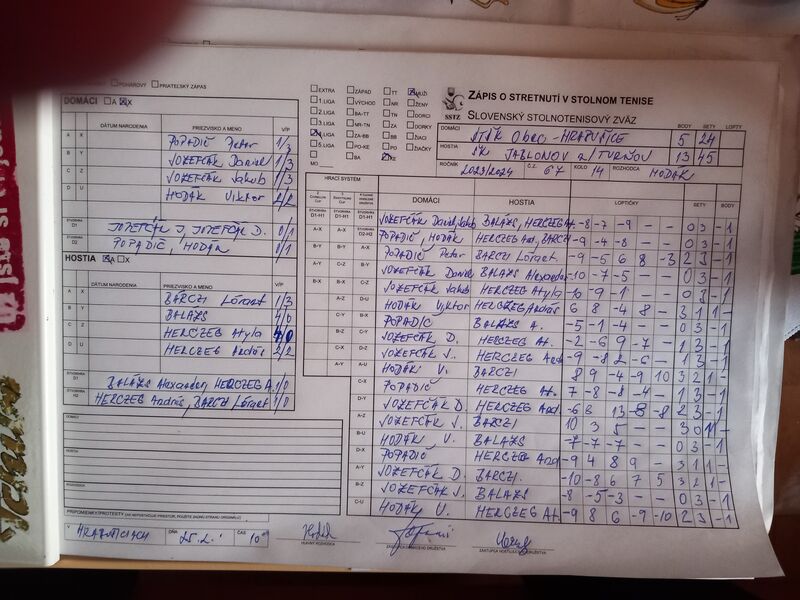 POHÁROVÝ PRIATEĽSKÝ ZÁPAS
DOMÁCI A X
DÁTUM NARODENIA PRIEZVISKO A MENO V/P
A X POPADIČ Peter 1/3
B Y JOZEFČÁK Daniel 1/3
C Z JOZEFČÁK Jakub 1/3
D U HODÁK Viktor 2/2
ŠTVORHRA D1 JOZEFČÁK J, JOZEFČÁK D. 0/1
ŠTVORHRA D2 POPADIČ, HODÁK 0/1
HOSTIA A X
DÁTUM NARODENIA PRIEZVISKO A MENO V/P
A X BARCZI Lórant 1/3
B Y BALÁZS 4/0
C Z HERCZEG Atyla 4/0
D U HERCZEG András 2/2
ŠTVORHRA BALÁZS Alexander, HERCZEG A. 1/0
ŠTVORHRA H2 HERCZEG András, BARCZI Lórant 1/0
DOMÁCI
HOSTIA
PRIPOMIENKY/PROTESTY (AK NEPOSTAČUJE PRIESTOR, POUŽITE ZADNÚ STRANU ORIGINÁLU)
V HRABUŠICIACH DŇA 25.2. ČAS 10
HLAVNÝ ROZHODCA
ZÁSTUPCA DOMÁCEHO DRUŽSTVA
ZÁSTUPCA HOSŤUJÚCEHO DRUŽSTVA
EXTRA ZÁPAD TT MUŽI
1.LIGA VÝCHOD NR ŽENY
2.LIGA BA-TT TN DORCI
3.LIGA NR-TN ZA DORKY
4.LIGA ZA-BB BB ŽIACI
5.LIGA PO-KE PO ŽIAČKY
MO BA KE
SSTZ
ZÁPIS O STRETNUTÍ V STOLNOM TENISE
SLOVENSKÝ STOLNOTENISOVÝ ZVÄZ
BODY SETY LOPTY
DOMÁCI 5 24
HOSTIA ŠK JABLONOV n/TURŇOU 13 45
ROČNÍK 2023/2024 Č.Z. 67 KOLO 14 ROZHODCA HODÁK
HRACÍ SYSTÉM DOMÁCI HOSTIA LOPTIČKY SETY BODY
D1-H1 D1-H1 D1-H1 JOZEFČÁK BALÁZS, HERCZEG A. -8 -7 -9 - - 0 3 - 1
A-X A-X D2-H2 POPADIČ, HODÁK HERCZEG And, BARCZI -9 -4 -8 - - 0 3 - 1
B-Y B-Y A-X POPADIČ Peter BARCZI Lórant -9 -5 6 8 -3 2 3 - 1
A-Y C-Z B-Y JOZEFČÁK Daniel BALÁZS Alexander -10 -7 -5 - - 0 3 - 1
B-X B-X C-Z JOZEFČÁK Jakub HERCZEG Atyla -6 -9 -1 - - 0 3 - 1
A-Z D-U HODÁK Viktor HERCZEG András 6 8 -4 8 - 3 1 1 -
C-Y B-X POPADIČ BALÁZS A. -5 -1 -4 - - 0 3 - 1
B-Z C-Y JOZEFČÁK D. HERCZEG At. -2 -6 9 -7 - 1 3 - 1
C-X D-Z JOZEFČÁK J. HERCZEG And -9 -8 2 -6 - 1 3 - 1
A-Y A-U HODÁK V. BARCZI 8 9 -4 -9 10 3 2 1 -
C-X POPADIČ HERCZEG At. 7 -8 -8 -4 - 1 3 - 1
D-Y JOZEFČÁK D. HERCZEG And. -6 6 13 -8 -8 2 3 - 1
A-Z JOZEFČÁK J. BARCZI 10 3 5 - - 3 0 1
B-U HODÁK V. BALÁZS -7 -7 -7 - - 0 3 - 1
D-X POPADIČ HERCZEG And -9 4 8 9 - 3 1 1 -
A-Y JOZEFČÁK D. BARCZI. -10 -8 6 7 5 3 2 1 -
B-Z JOZEFČÁK J. BALÁZS -8 -5 -3 - - 0 3 - 1
C-U HODÁK V. HERCZEG At. -9 8 6 -9 -10 2 3 - 1